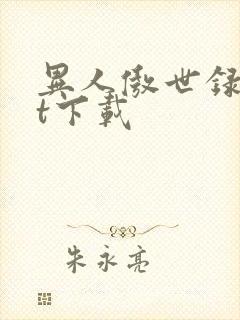 異人傲世録
t下載
朱永亮